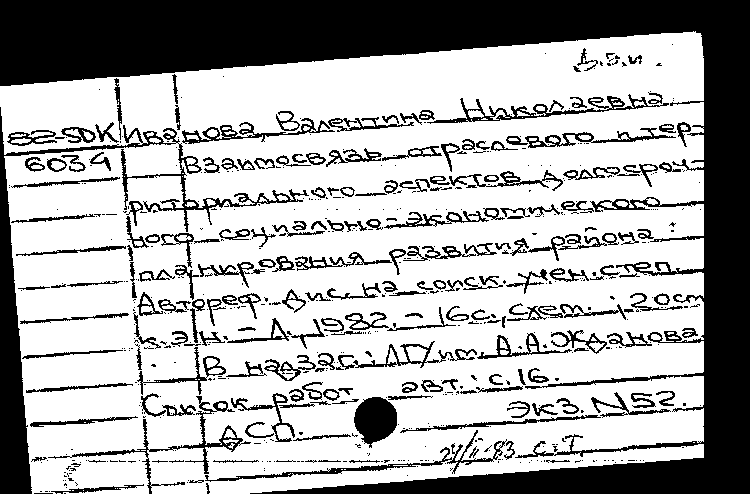 Д.э.н.
82-5DK Иванова, Валентина Николаевна
6034 Взаимосвязь отраслевого и тер-
риториального аспектов долгосроч-
ного социально-экономического
планирования развития района:
Автореф. дис. на соиск. учен. степ.
к.э.н. - Л., 1982. - 16 с., схем.; 20 см
В надзаг.: ЛГУ им. А.А. Жданова
Список работ авт.: с. 16.
Экз. N52.
ДСП.
24/II-83 с.т.